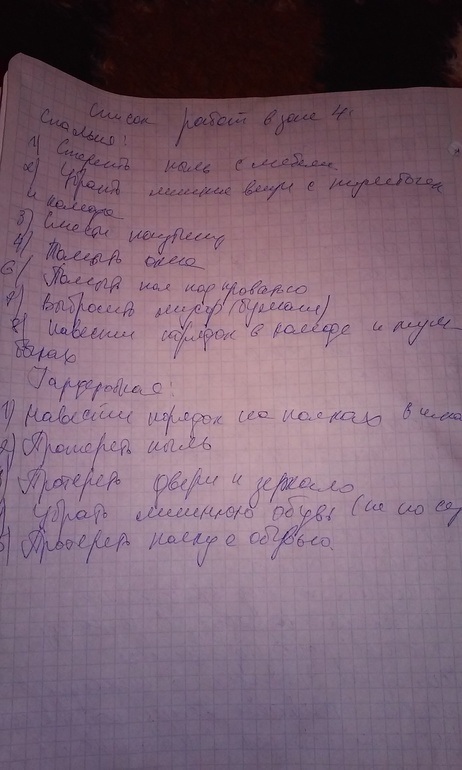 Список работ в зоне 4:
Спальня:
1) Стереть пыль с мебели.
2) Убрать лишние вещи с тумбочек
и комода
3) Смести паутину
4) Помыть окна
6) Помыть пол под кроватью
7) Выбросить мусор (бумаги)
8) Навести порядок в комоде и тум-
бочках
Гардеробная:
1) Навести порядок на полках в
2) Протереть пыль
3) Протереть двери и зеркало
4) Убрать лишнюю обувь (не по се
5) Протереть полку с обувью.